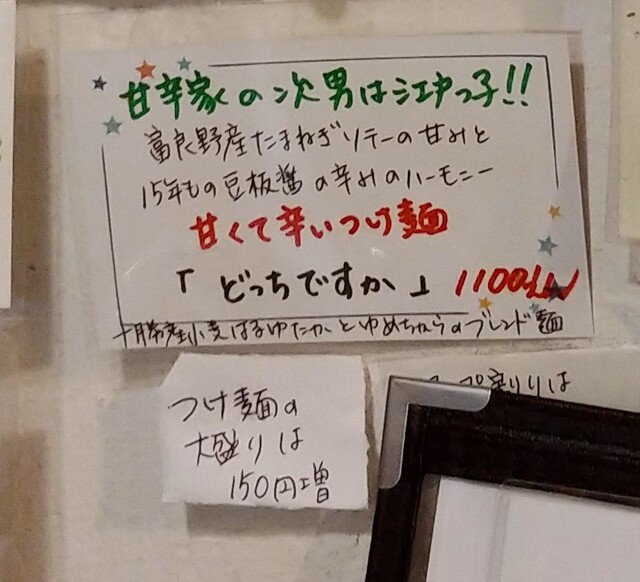 甘辛家の次男は江戸っ子!!
富良野産たまねぎソテーの甘みと
15年もの豆板醤の辛みのハーモニー
甘くて辛いつけ麺
「どっちですか」 1100
十勝産小麦はるゆたかとゆめちからのブレンド麺
つけ麺の
大盛りは
150円増
プ割りは